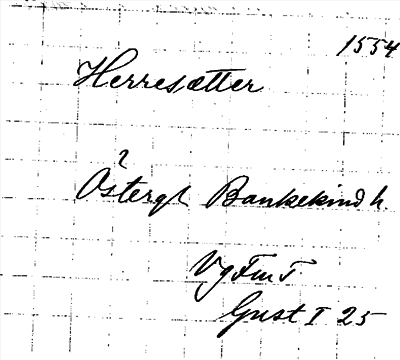 1554
Herresætter
?
Östergl Bankekind h.
Vg Fm T
Gust I 25